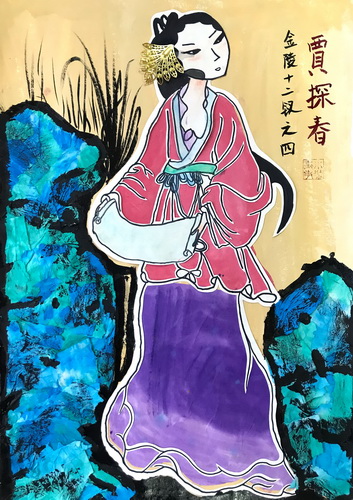 賈探春
金陵十二钗之四